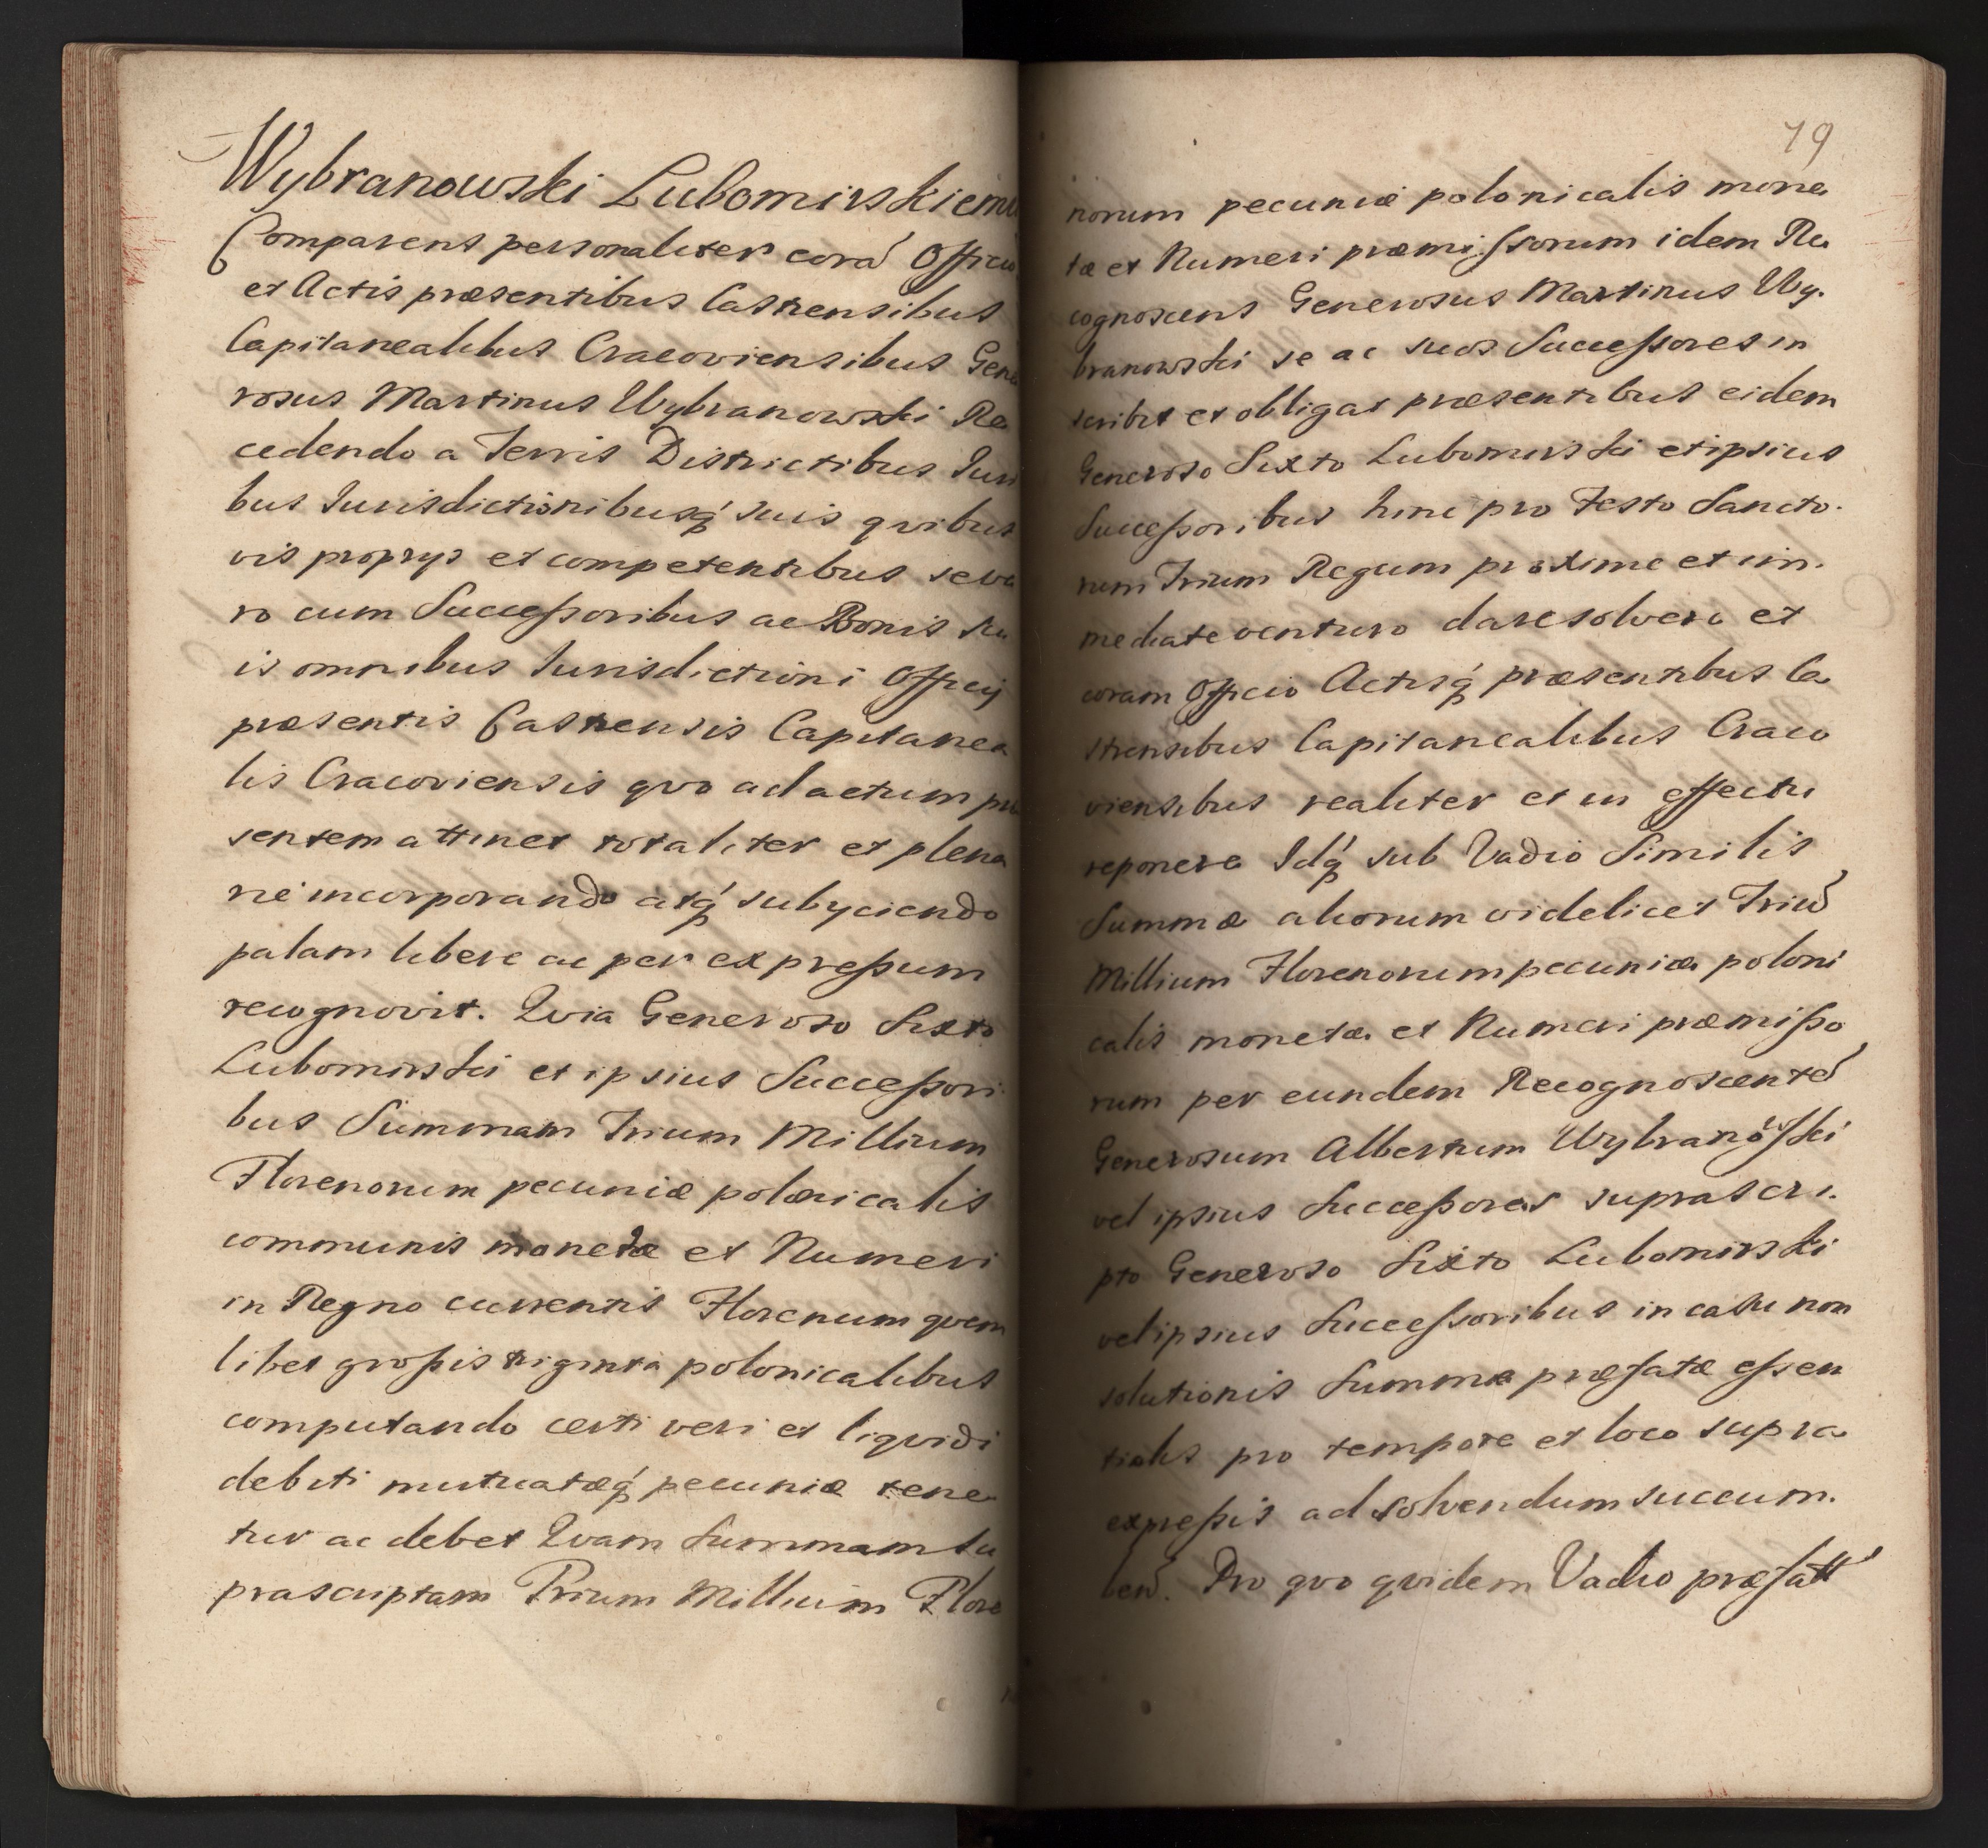 Wybranowski Lubomirskiemu
Comparens personaliter corã Officio
et Actis præsentibus Castrensibus
Capitanealibus Cracoviensibus Gene
rosus Martinus Wybranowski Re
cedendo a Terris Districtibus Juri
bus Jurisdictionibusq́ suis quibus
vis proprys et competentibus seve
ro cum Succeßoribus ac Bonis su
is omnibus Jurisdictioni Officij
præsentis Castrensis Capitanea
lis Cracoviensis qvo ad actum præ
sentem attinet totaliter et plena
rie incorporando atq́ subyciendo
palam libere ac per expreßum
recognovit. Qvia Generoso Sixto
Lubomirski et ipsius Succeßori
bus Summam Trium Millium
Florenorum pecuniæ polonicalis
communis monetæ et Numeri
in Regno currentis Florenum qvem
libet großis triginta polonicalibus
computando certi veri et liqvidi
debiti mutuatæq́ pecuniæ tene
tur ac debet Qvam Summam su
prascriptam Trium Millium Flore
79
norum pecuniæ polonicalis mone
tæ et Numeri præmissorum idem Re
cognoscens Generosus Martinus Wy.
branowski se ac suos Successores in
scribit et obligat præsentibus eidem
Generoso Sixto Lubomirski et ipsius
Succeßoribus hinc pro Festo Sancto.
rum Trium Regum proxime et im.
mediate venturo dare solvere et
coram Officio Actisq́ præsentibus Ca
strensibus Capitanealibus Craco
viensibus realiter et in effectu
reponere Idq́ sub Vadio Similis
Summæ aliorum videlicet Triũ
Millium Florenorum pecuniæ poloni
calis monetæ et Numeri præmißo
rum per eundem Recognoscentẽ
Generosum Albertum Wybranowski
vel ipsius Succeßores suprascri.
pto Generoso Sixto Lubomirski
vel ipsius Successoribus in casu non
solutionis Summæ præfatæ essen
tialis pro tempore et loco supra
expreßis ad solvendum succum.
ben̄. Pro qvo qvidem Vadio præfatt